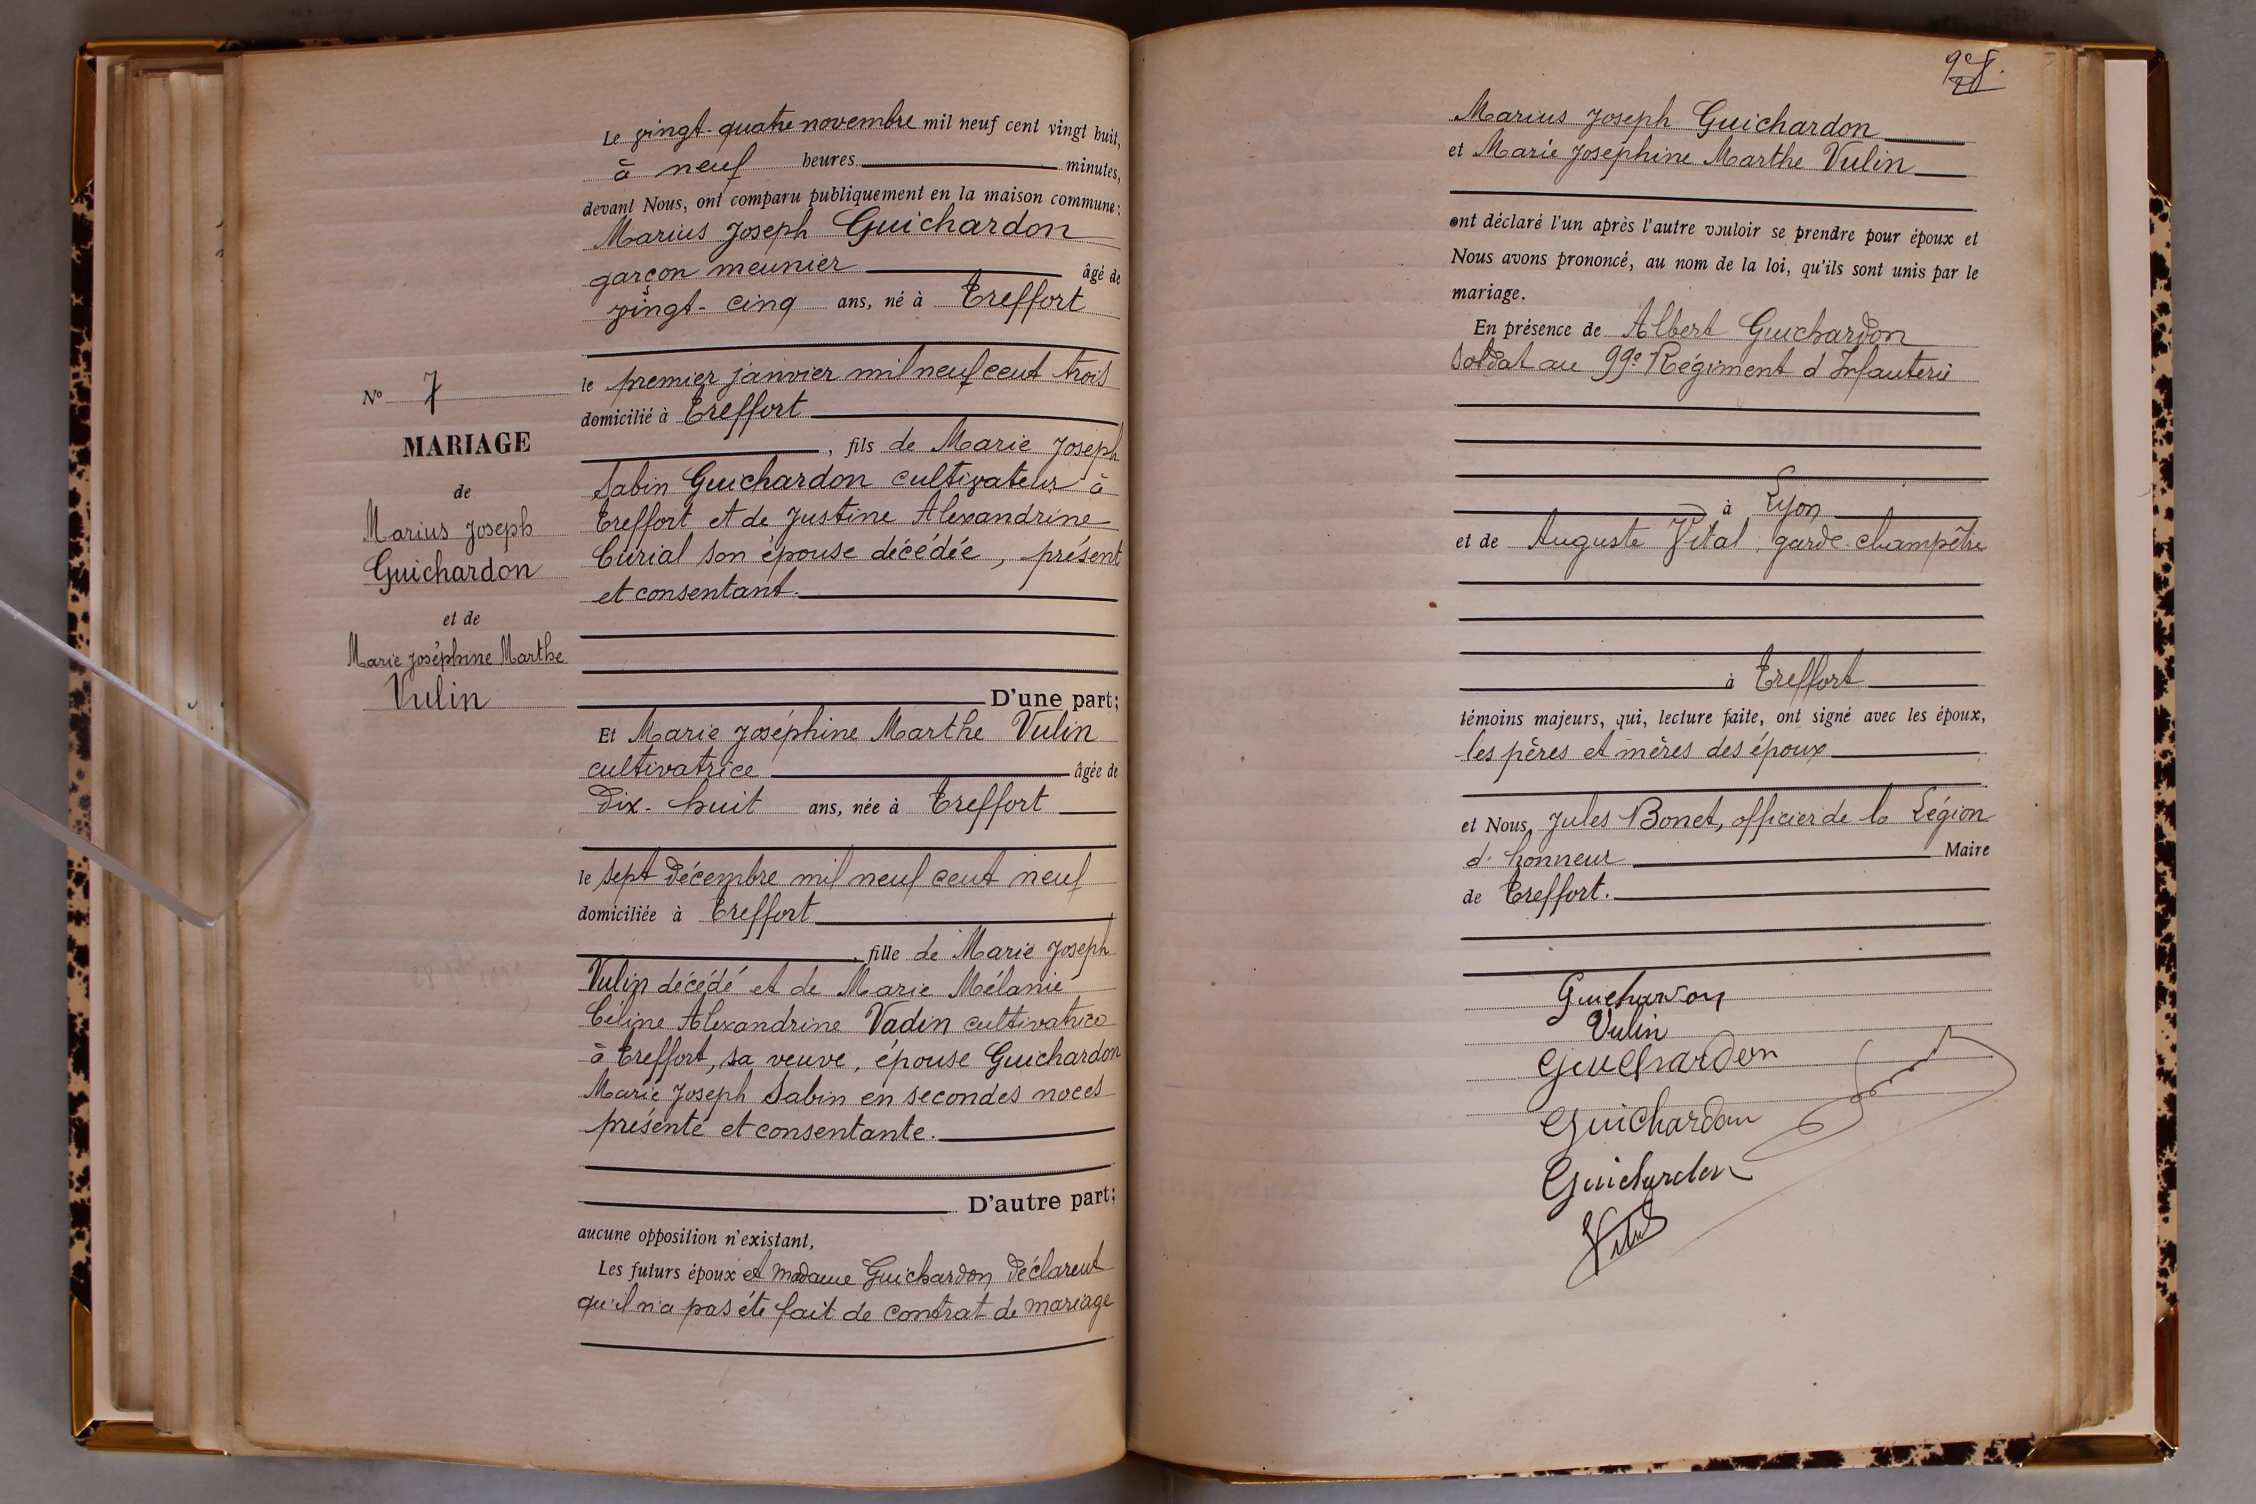 N° 7
MARIAGE
de
Marius Joseph
Guichardon
et de
Marie Joséphine Marthe
Vulin
Le vingt-quatre novembre mil neuf cent vingt huit,
à neuf heures minutes,
devant Nous, ont comparu publiquement en la maison commune:
Marius Joseph Guichardon
garçon meunier âgé de
vingt-cinq ans, né à Treffort
le premier janvier mil neuf cent trois
domicilié à Treffort
, fils de Marie Joseph
Sabin Guichardon cultivateur à
Treffort et de Justine Alexandrine
Curial son épouse décédée, présent
et consentant.
D'une part;
Et Marie Joséphine Marthe Vulin
cultivatrice âgée de
Dix-huit ans, née à Treffort
le sept décembre mil neuf cent neuf
domiciliée à Treffort
, fille de Marie Joseph
Vulin décédé et de Marie Mélanie
Céline Alexandrine Vadin cultivatrice
à Treffort, sa veuve, épouse Guichardon
Marie Joseph Sabin en secondes noces
présente et consentante.
D'autre part;
aucune opposition n'existant,
Les futurs époux et Madame Guichardon déclarent
qu'il n'a pas été fait de contrat de mariage
Marius Joseph Guichardon
et Marie Joséphine Marthe Vulin
ont déclaré l'un après l'autre vouloir se prendre pour époux et
Nous avons prononcé, au nom de la loi, qu'ils sont unis par le
mariage.
En présence de Albert Guichardon
soldat au 99e Régiment d'Infanterie
à Lyon
et de Auguste Vital, garde-champêtre
à Treffort
témoins majeurs, qui, lecture faite, ont signé avec les époux,
les pères et mères des époux
et Nous, Jules Bonet, officier de la Légion
d'honneur Maire
de Treffort.
Guichardon
Vulin
Guichardon
Guichardon
Guichardon
Vital